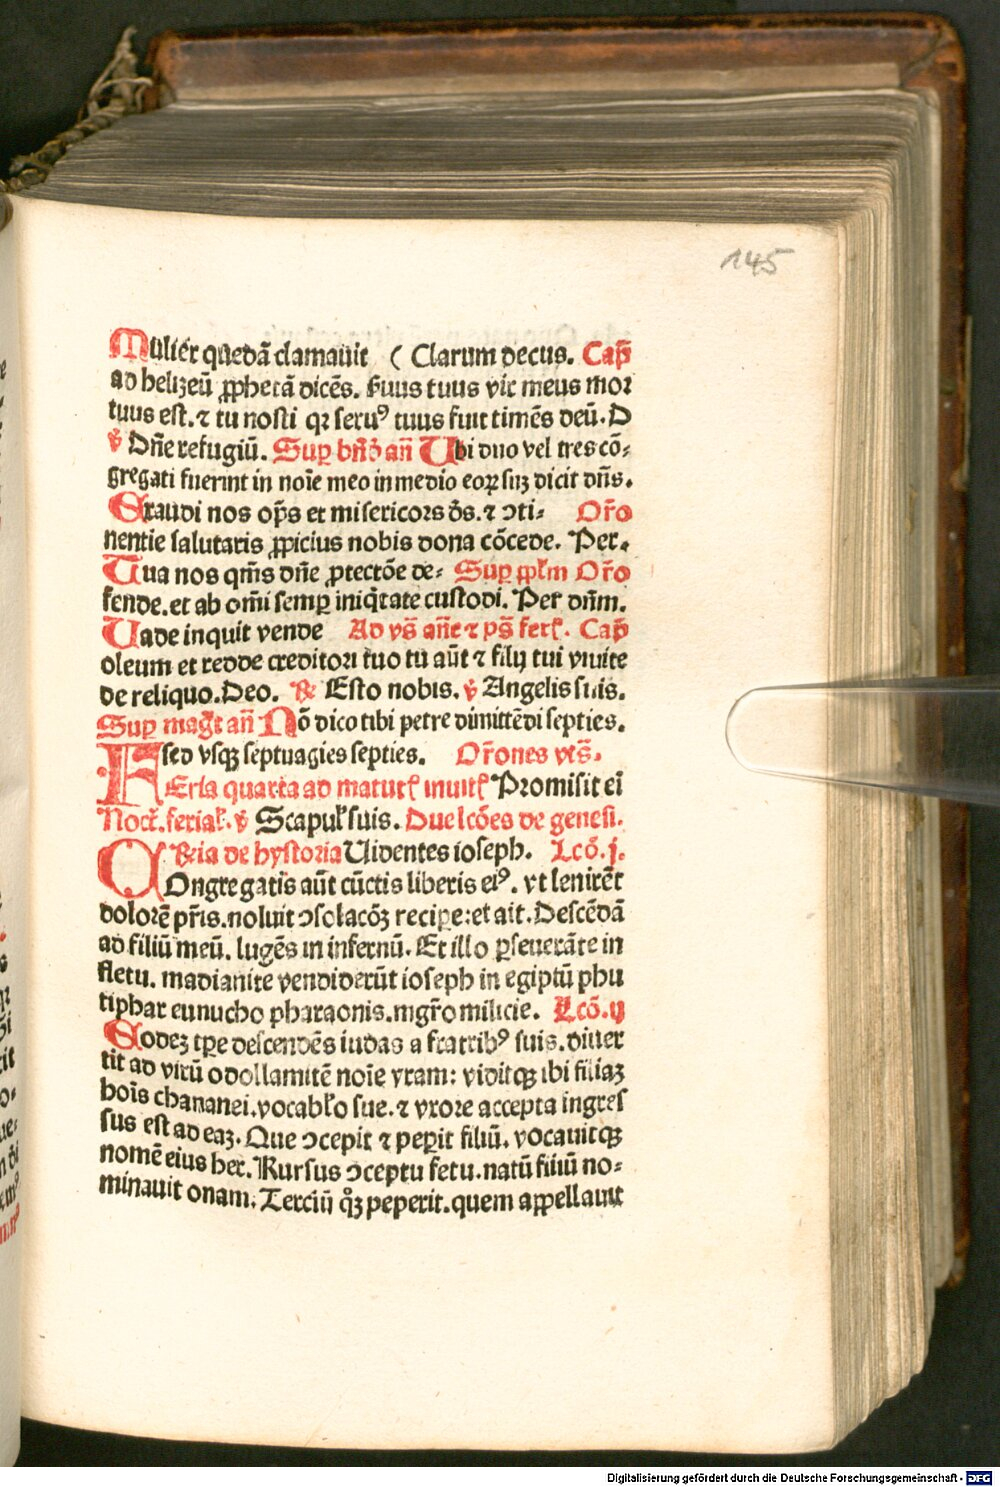 145
Mulier quedā clamauit ( Clarum decus. Cap̄
ad helizeū ꝓphetā dicēs. Suus tuus vir meus mor
tuus est. ⁊ tu nosti qꝛ seruꝰ tuus fuit timēs deū. D
℣ Dn̄e refugiū. Suꝑ bn̄d̄ an̄ Ubi duo vel tres cō⸗
gregati fuerint in noīe meo in medio eoꝝ suꝫ dicit dn̄s.
Exaudi nos op̄s et misericors d̄s. ⁊ ↄti⸗ Or̄o
nentie salutaris ꝓpicius nobis dona cōcede. Per.
Tua nos qm̄s dn̄e ꝓtectōe de⸗ Suꝑ ppl̄m Or̄o
fende. et ab om̄i semꝑ iniq̄tate custodi. Per dn̄m.
Uade inquit vende Ad vs̄ an̄e ⁊ ps̄ fer̄. Cap̄
oleum et redde creditori tuo tu aūt ⁊ filij tui viuite
de reliquo. Deo. ℟ Esto nobis. ℣ Angelis suis.
Suꝑ maḡt an̄ Nō dico tibi petre dimittēdi septies.
sed vsqꝫ septuagies septies. Or̄ones vts̄.
FEria quarta ad matut̄ inuit̄ Promisit eī
Noct̄. ferial̄. ℣ Scapul̄ suis. Due lcōes de genesi.
℟ia de hystoria Uidentes ioseph. Lcō. j.
COngregatis aūt cūctis liberis eiꝰ. vt lenirēt
dolorē pr̄is. noluit ↄsolacōꝫ recipe: et ait. Descēdā
ad filiū meū. lugēs in infernū. Et illo ꝑseuerāte in
fletu. madianite vendiderūt ioseph in egiptū phu
tiphar eunucho pharaonis. mgr̄o milicie. Lcō. ij
Eodeꝫ tꝑe descendēs iudas a fratribꝰ suis. diuer
tit ad virū odollamitē noīe yram: viditqꝫ ibi filiaꝫ
hoīs chananei. vocabl̄o sue. ⁊ vxore accepta ingres
sus est ad eaꝫ. Que ↄcepit ⁊ peꝑit filiū. vocauitqꝫ
nomē eius her. Rursus ↄceptu fetu. natū filiū no⸗
minauit onam. Terciū qꝫ peperit. quem appellauit
Digitalisierung gefördert durch die Deutsche Forschungsgemeinschaft - DFG